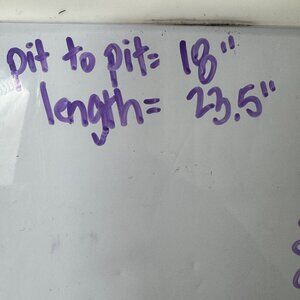 pit to pit= 18"
length= 23.5"